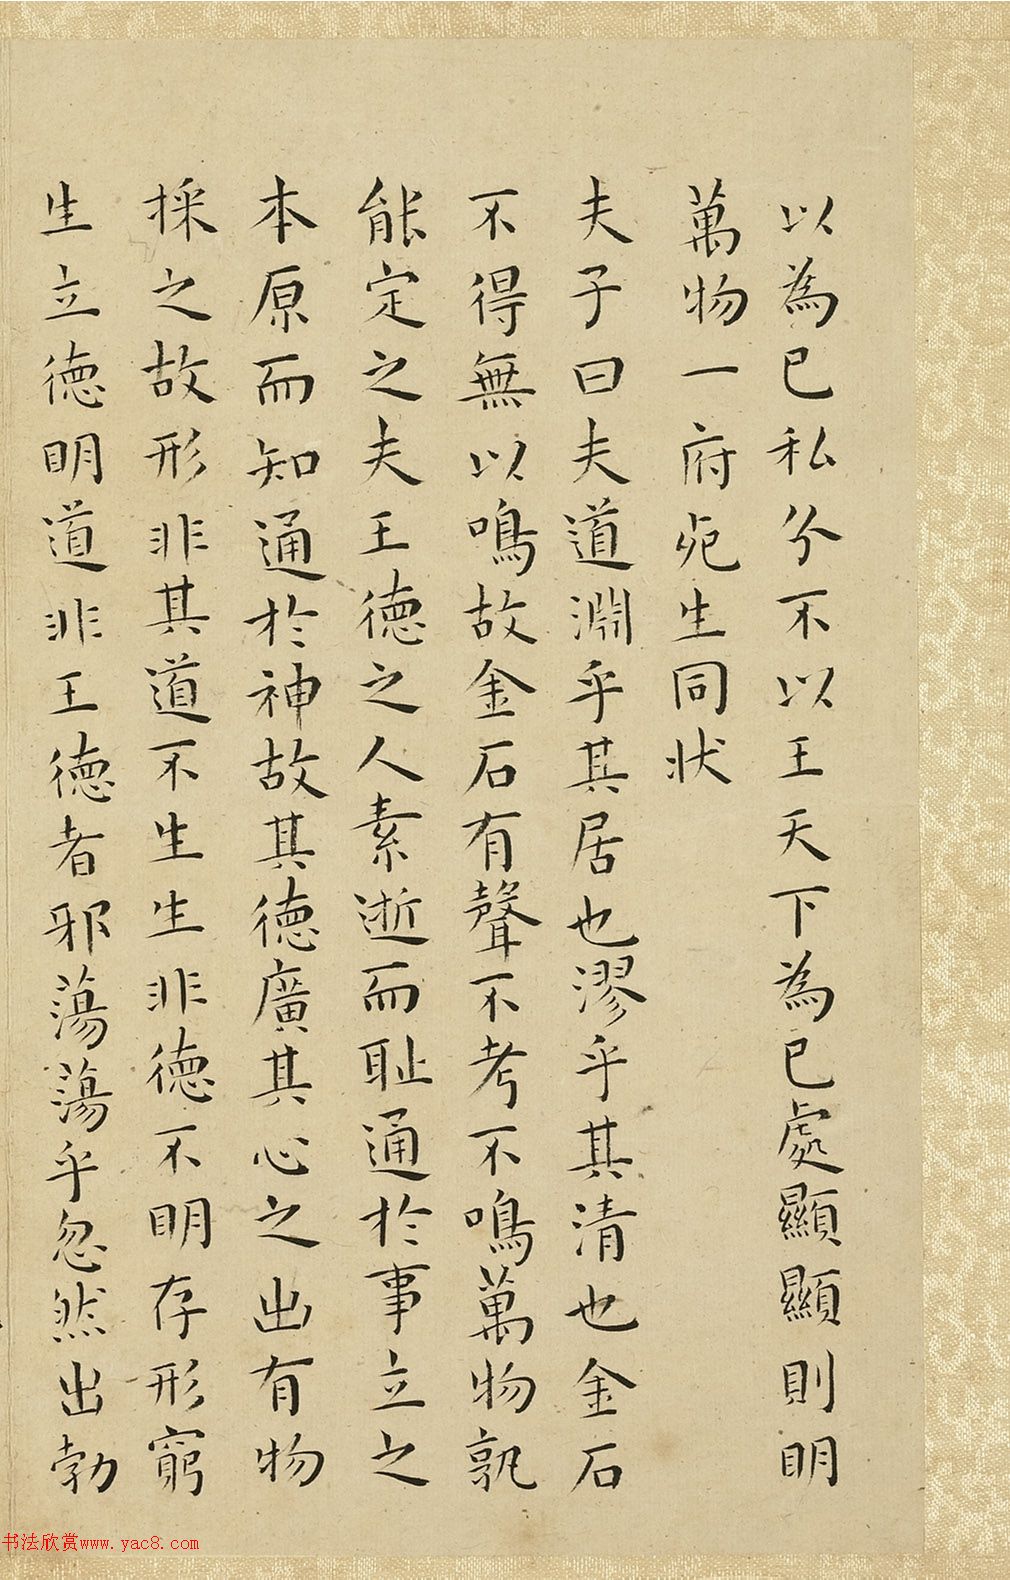 以為已私分不以王天下為已處顯顯則明
萬物一府死生同状
夫子曰夫道淵乎其居也漻乎其清也金石
不得無以鳴故金石有聲不考不鳴萬物孰
能定之夫王德之人素逝而耻通於事立之
本原而知通於神故其德廣其心之出有物
採之故形非其道不生生非德不明存形窮
生立德明道非王德者邪蕩蕩乎忽然出勃
书法欣赏www.yac8.com